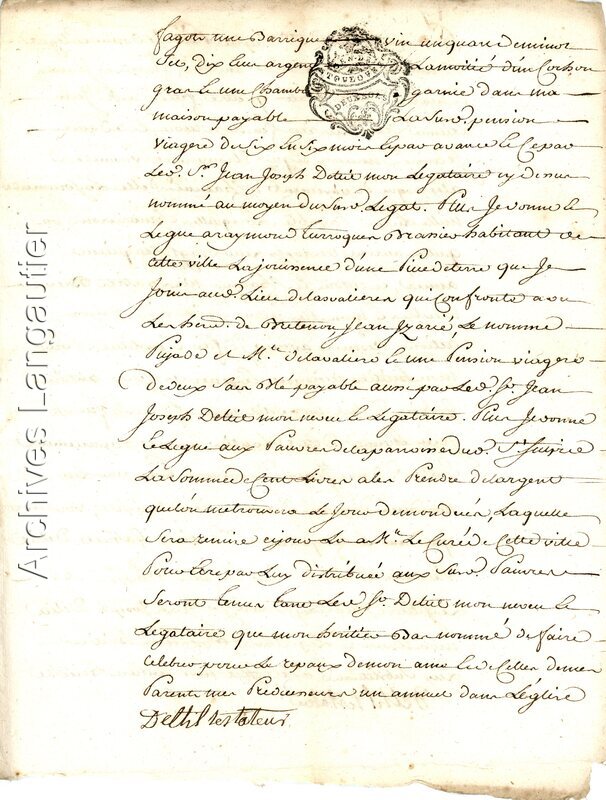 fagots une Barrique vin un quart de minot
sel, dix livres argent La moitié d'un Cochon
gras et une Chambre garnie dans ma
maison payable La susd. pension
viagere de six en six mois et par avance et Ce par
Led. Sr. Jean Joseph Deltil mon Legataire cy dessus
nommé au moyen du susd. Legat. Plus Je donne et
Legue a raymond Brassier habitant de
Cette ville La jouissence d'une Piece de terre que Je
Jouis aud. Lieu de Lasvalieres qui Confronte avec
Les hered. de Bretenou Jean Izarié, Le nommé
Pujade et Mr. de Lavaliere et une Pension viagere
de deux Sacs Blé payable aussi par Led. Sr. Jean
Joseph Deltil mon neveu et Legataire. Plus Je donne
et Legue aux Pauvres de La parroisse dud. St. Sulpice
La Somme de Cent Livres a les Prendre de Largent
que Lon metrouvera Le Jour de mon deces, Laquelle
Sera remise ce jour La a Mr. Le Curé de Cette ville
Pour Etre par Luy distribuée aux Susd. Pauvres
Seront tenus tant Led. Sr. Deltil mon neveu et
Legataire que mon heritier Bas nommé de faire
Celebrer pour Le repaux de mon ame et de Celles de mes
Parents mes Predecesseurs un annuel dans L'église
Deltil testateur
TOULOUSE
DEUX SOLS
Archives Langautier